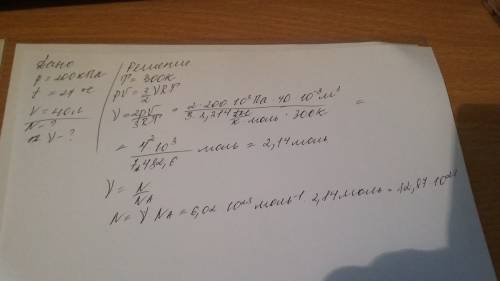 Дано
p = 200 кПа
t = 27 °C
V = 40 л
N - ?
ν - ?
Решение
T = 300К
pV = 3/2 νRT
ν = 2pV/3RT = 2 · 200 · 10³ Па · 40 · 10⁻³ м³ / 3 · 8,314 · моль · 300К =
= 10³ / 7482,6 моль = 2,14 моль
ν = N/N_A
N = ν N_A = 6,02 · 10²³ моль⁻¹ · 2,14 моль = 12,87 · 10²³